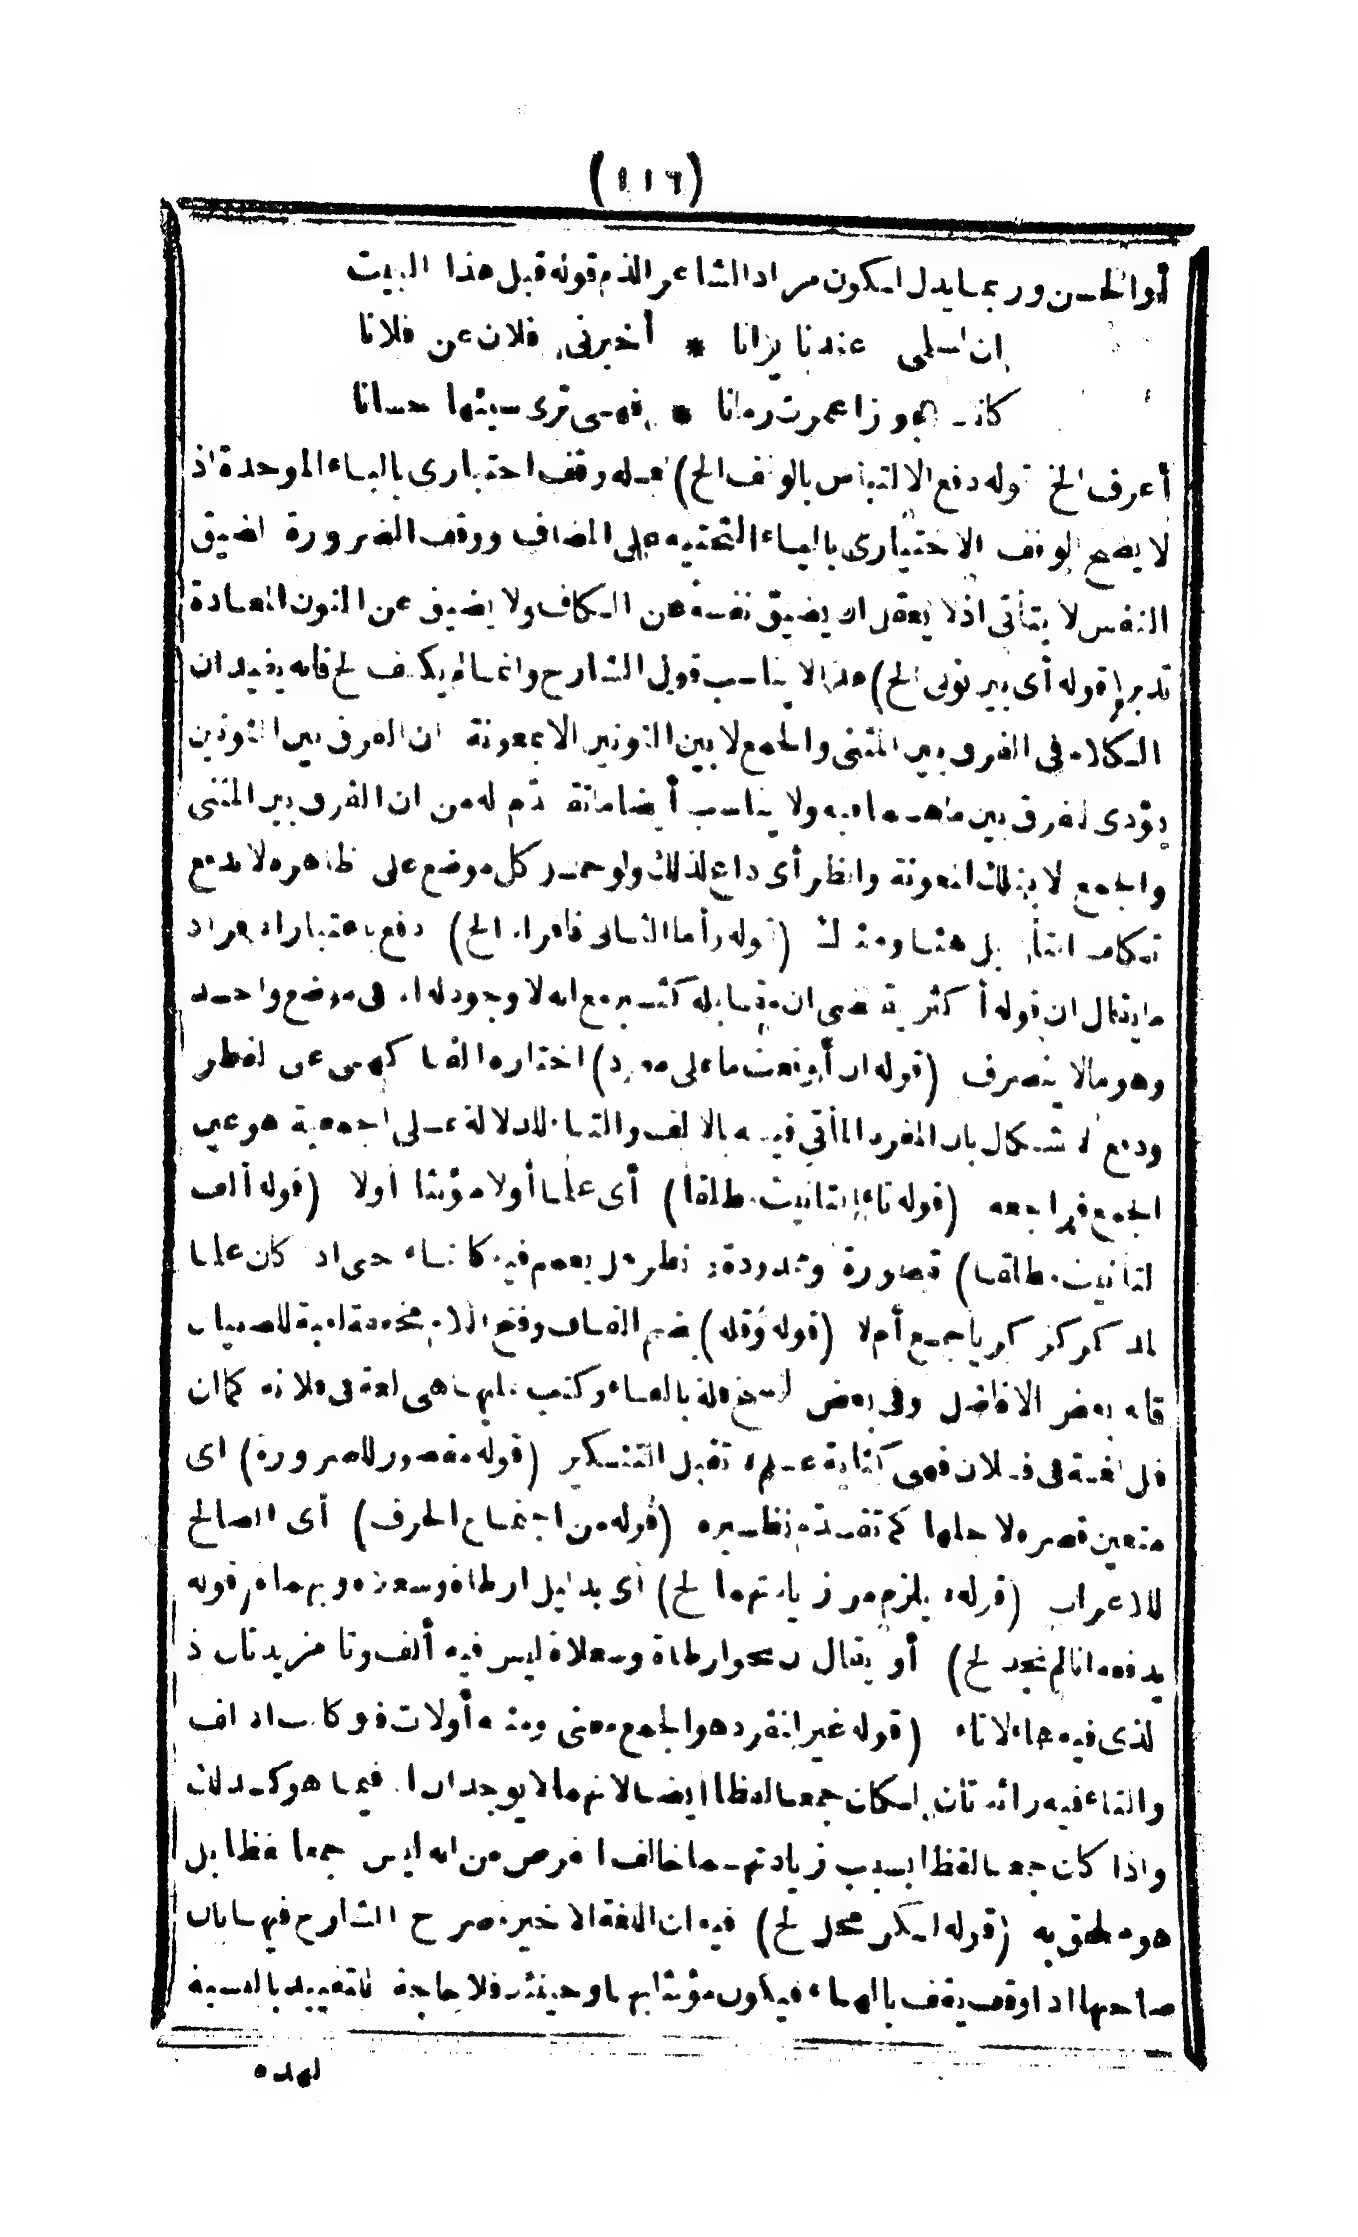 (١١٦)
أبو الحسن وربما يدل لكون مراد الشاعر الذم قوله قبل هذا البيت
ان لسلمى عندنا ديوانا * أخبرنى فلان عن فلانا
كانت عجوزا عمرت زمانا * فهى ترى سيئها حسانا
أعرف الخ قوله دفع الالتباس بالوقف الخ) لعله وقف اختبارى بالباء الموحدة اذ
لا يصح الوقف الاختيارى بالياء التحتية على المضاف ووقف الضرورة لضيق
النفس لا يتأتى اذ لا يعقل ان يضيق نفسه عن الكاف ولا يضيق عن النون المعادة
تدبر (قوله أى بين نونى الخ) هذا لا يناسب قول الشارح وانما لم يكتف الخ فانه يفيد ان
الكلام فى الفرق بين المثنى والجمع لا بين النونين الا بمعونة ان الفرق بين النونين
يؤدى للفرق بين ماهما فيه ولا يناسب أيضا ما تقدم له من ان الفرق بين المثنى
والجمع لا بتلك المعونة وانظر أى داع لذلك ولو حمل كل موضع على ظاهره لاندفع
تكلف التأويل هنا ومثله (قوله وأما الثانى فأفراد الخ) دفع باعتبار افراد
ما يقال ان قوله أكثر يقتضى ان مقابله كثير مع انه لا وجود له الا فى موضع واحد
وهو مالا ينصرف (قوله ان أبو نعت ما على مفرد) اختاره الفاكهى على القطر
ودفع الاشكال بان المفرد المأتى فيه بالالف والتاء للدلالة على الجمعية هو عين
الجمع فراجعه (قوله تاء التانيث مطلقا) أى علما أولا مؤنثا أولا (قوله ألف
التأنيث مطلقا) مقصورة وممدودة وانظر هل يعمم فيه كالتاء حتى اذا كان علما
لمذكر كزكريا جمع أم لا (قوله وقله) بضم القاف وفتح اللام مخففة لعبة للصبيان
قاله بعض الافاضل وفى بعض النسخ فلة بالفاء وكتب عليها هى لغة فى فلانة كما ان
فل لغة فى فلان فهى كناية علم لا تقبل التنكير (قوله مقصور للضرورة) اى
متعين قصره لاجلها كما تقدم نظيره (قوله من اجتماع الحرف) أى الصالح
للاعراب (قوله يلزم من زيادتهما الخ) أى بدليل ارطاة وسعلاة وبهماة وقوله
يدفعه انا لم نجد الخ) أو يقال نحو ارطاة وسعلاة ليس فيه ألف وتا مزيدتان اذ
الذى فيه هاء لا تاء (قوله غير انفرد هو الجمع معنى ومنه أولات فلو كانت الالف
والتاء فيه زائدتان لكان جمعا لفظا ايضا لانهما لا يوجدان الا فيما هو كذلك
واذا كان جمعا لفظا بسبب زيادتهما خالف الفرض من انه ليس جمعا لفظا بل
هو ملحق به (قوله لكن محل الخ) فيه ان اللغة الاخيرة صرح الشارح فيها بان
صاحبها اذا وقف يقف بالهاء فيكون مؤنثا بها وحينئذ فلا حاجة للتقييد بالنسبة
لهذه